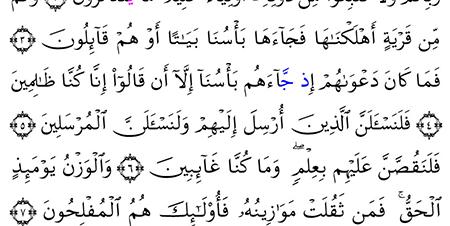 مِّن قَرْيَةٍ أَهْلَكْنَـٰهَا فَجَآءَهَا بَأْسُنَا بَيَـٰتًا أَوْ هُمْ قَآئِلُونَ ﴿٣﴾
فَمَا كَانَ دَعْوَىٰهُمْ إِذ جَّآءَهُم بَأْسُنَآ إِلَّآ أَن قَالُوٓا۟ إِنَّا كُنَّا ظَـٰلِمِينَ
﴿٤﴾ فَلَنَسْـَٔلَنَّ ٱلَّذِينَ أُرْسِلَ إِلَيْهِمْ وَلَنَسْـَٔلَنَّ ٱلْمُرْسَلِينَ ﴿٥﴾
فَلَنَقُصَّنَّ عَلَيْهِم بِعِلْمٍۢ ۖ وَمَا كُنَّا غَآئِبِينَ ﴿٦﴾ وَٱلْوَزْنُ يَوْمَئِذٍ
ٱلْحَقُّ ۚ فَمَن ثَقُلَتْ مَوَٰزِينُهُۥ فَأُو۟لَـٰٓئِكَ هُمُ ٱلْمُفْلِحُونَ ﴿٧﴾